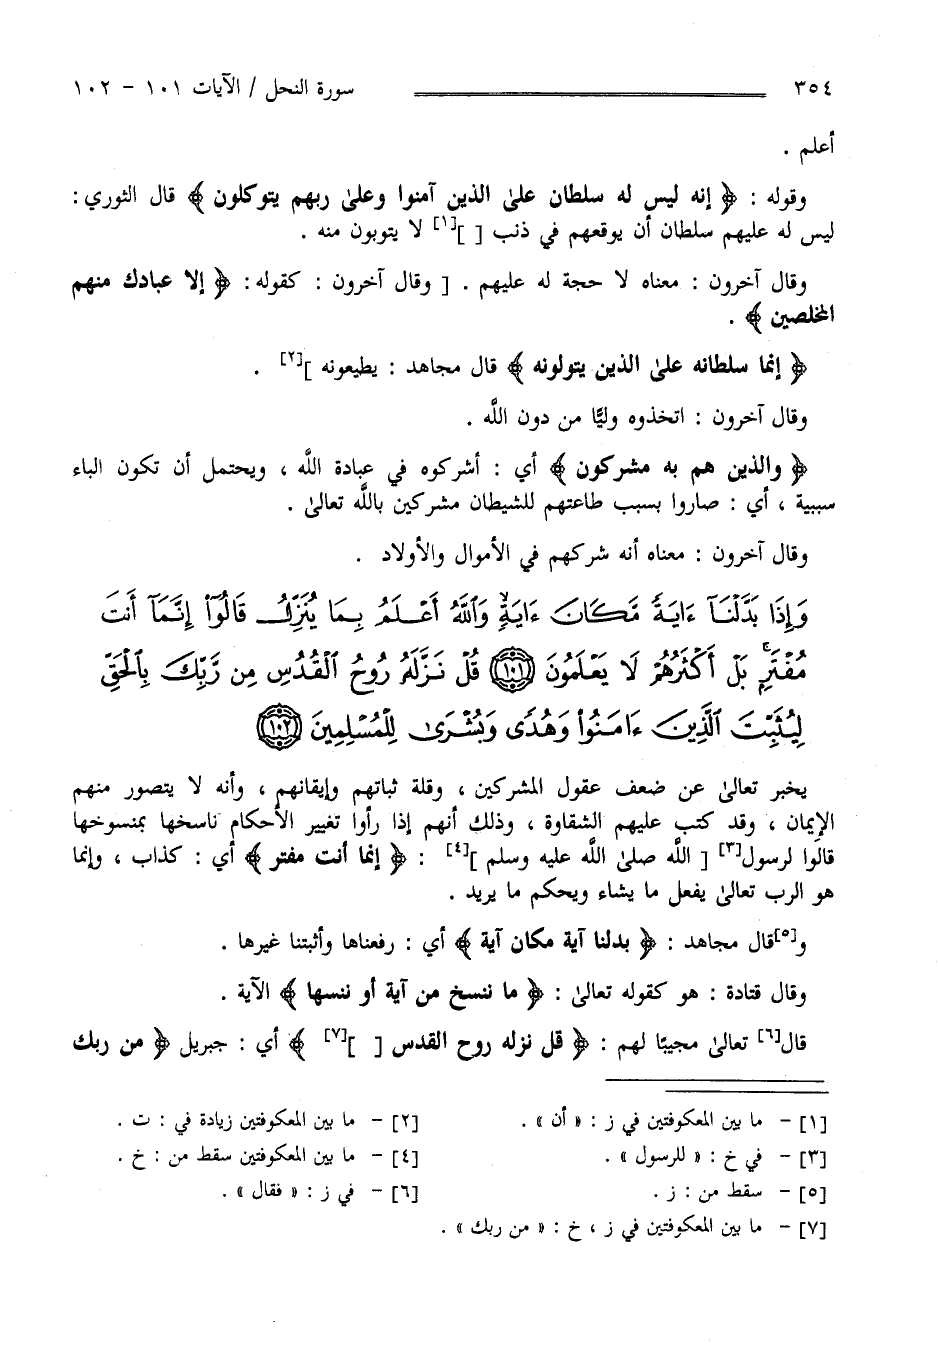 ٣٥٤ سورة النحل / الآيات ١٠١ - ١٠٢
أعلم .
وقوله : ﴿ إنه ليس له سلطان علىٰ الذين آمنوا وعلىٰ ربهم يتوكلون ﴾ قال الثوري :
ليس له عليهم سلطان أن يوقعهم في ذنب [ ][١] لا يتوبون منه .
وقال آخرون : معناه لا حجة له عليهم . [ وقال آخرون : كقوله : ﴿ إلا عبادك منهم
المخلصين ﴾ .
﴿ إنما سلطانه علىٰ الذين يتولونه ﴾ قال مجاهد : يطيعونه ][٢] .
وقال آخرون : اتخذوه وليًّا من دون اللَّه .
﴿ والذين هم به مشركون ﴾ أي : أشركوه في عبادة اللَّه ، ويحتمل أن تكون الباء
سببية ، أي : صاروا بسبب طاعتهم للشيطان مشركين باللَّه تعالىٰ .
وقال آخرون : معناه أنه شركهم في الأموال والأولاد .
وَإِذَا بَدَّلْنَآ ءَايَةً مَّكَانَ ءَايَةٍۙ وَٱللَّهُ أَعْلَمُ بِمَا يُنَزِّلُ قَالُوٓا۟ إِنَّمَآ أَنتَ
مُفْتَرٍۭۚ بَلْ أَكْثَرُهُمْ لَا يَعْلَمُونَ ١٠١ قُلْ نَزَّلَهُۥ رُوحُ ٱلْقُدُسِ مِن رَّبِّكَ بِٱلْحَقِّ
لِيُثَبِّتَ ٱلَّذِينَ ءَامَنُوا۟ وَهُدًى وَبُشْرَىٰ لِلْمُسْلِمِينَ ١٠٢
يخبر تعالىٰ عن ضعف عقول المشركين ، وقلة ثباتهم وإيقانهم ، وأنه لا يتصور منهم
الإيمان ، وقد كتب عليهم الشقاوة ، وذلك أنهم إذا رأوا تغيير الأحكام ناسخها بمنسوخها
قالوا لرسول[٣] [ اللَّه صلىٰ اللَّه عليه وسلم ][٤] : ﴿ إنما أنت مفتر ﴾ أي : كذاب ، وإنما
هو الرب تعالىٰ يفعل ما يشاء ويحكم ما يريد .
و[٥]قال مجاهد : ﴿ بدلنا آية مكان آية ﴾ أي : رفعناها وأثبتنا غيرها .
وقال قتادة : هو كقوله تعالىٰ : ﴿ ما ننسخ من آية أو ننسها ﴾ الآية .
قال[٦] تعالىٰ مجيبًا لهم : ﴿ قل نزله روح القدس [ ][٧] ﴾ أي : جبريل ﴿ من ربك
[١] - ما بين المعكوفتين في ز : « أن » . [٢] - ما بين المعكوفتين زيادة في : ت .
[٣] - في خ : « للرسول » . [٤] - ما بين المعكوفتين سقط من : خ .
[٥] - سقط من : ز . [٦] - في ز : « فقال » .
[٧] - ما بين المعكوفتين في ز ، خ : « من ربك » .